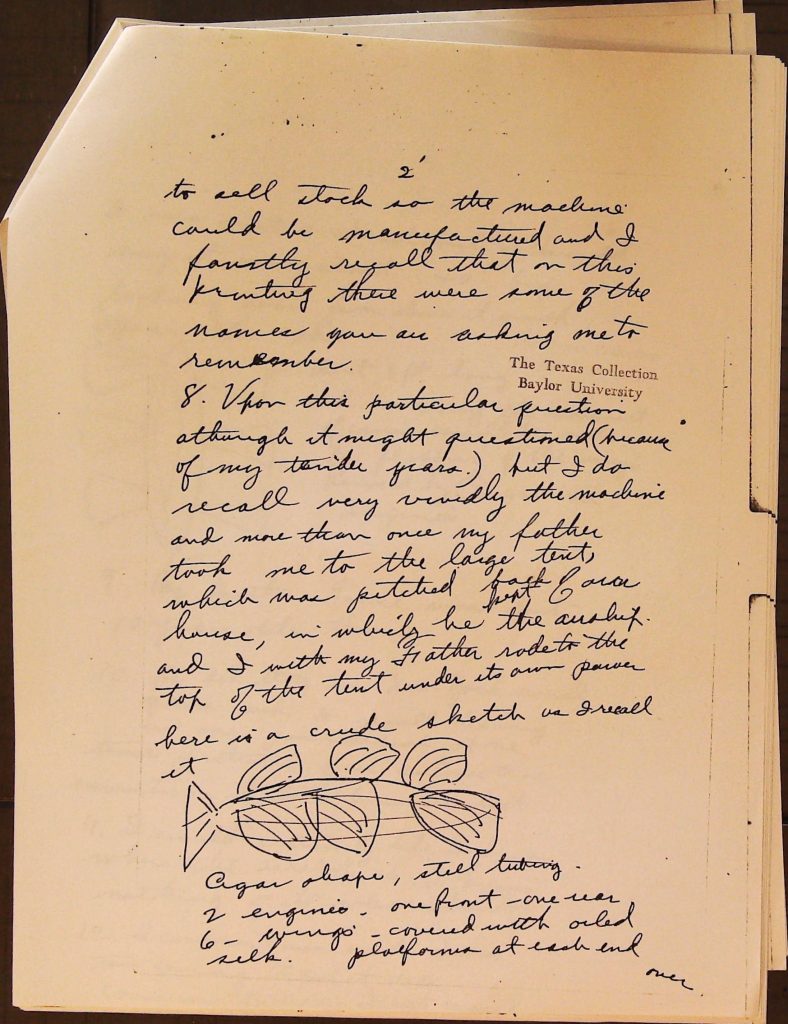 2
to sell stock so the machine
could be manufactured and I
faintly recall that on this
printing there were some of the
names you are asking me to
remember.
The Texas Collection
Baylor University
8. Upon this particular question
although it might questioned (because
of my tender years.) but I do
recall very vividly the machine
and more than once my father
took me to the large tent,
which was pitched back of our
house, in which he kept the airship.
and I with my Father rode to the
top of the tent under its own power
here is a crude sketch as I recall
it
Cigar shape, steel tubing.
2 engines - one front - one rear
6 - wings - covered with oiled
silk. platforms at each end
over